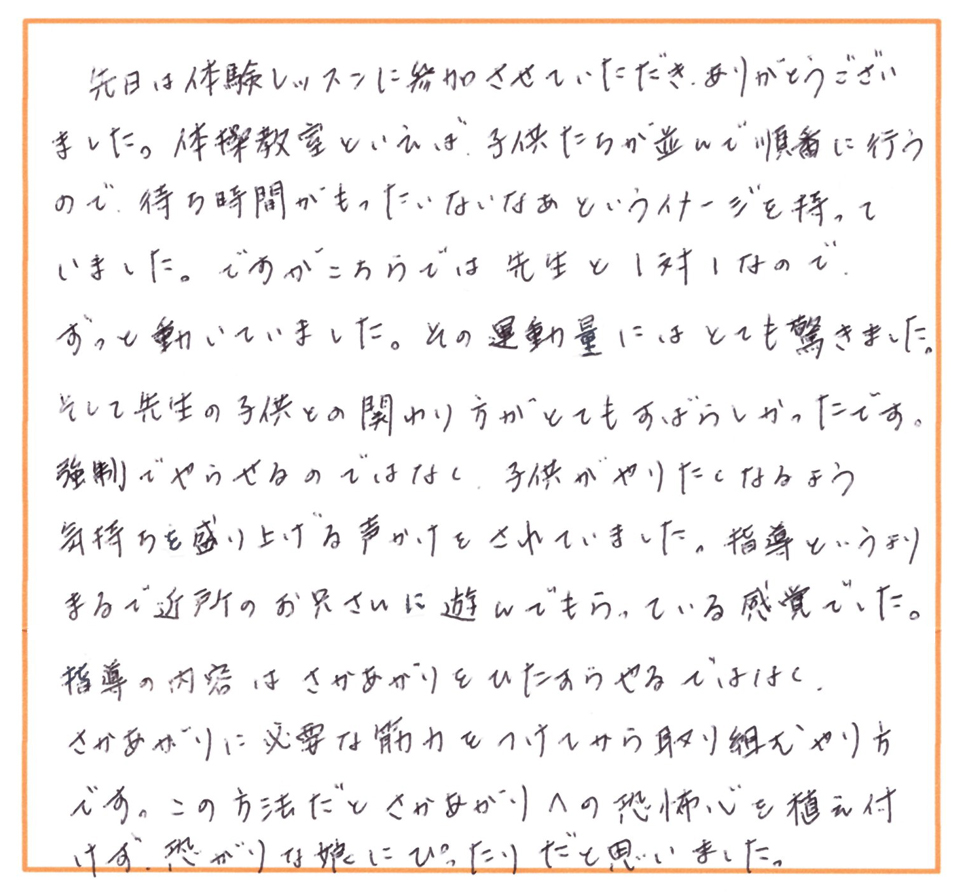 先日は体験レッスンに参加させていただき、ありがとうござい
ました。体操教室といえば、子供たちが並んで順番に行う
ので、待ち時間がもったいないなあというイメージを持って
いました。ですがこちらでは先生と1対1なので、
ずっと動いていました。その運動量にはとても驚きました。
そして先生の子供との関わり方がとてもすばらしかったです。
強制でやらせるのではなく、子供がやりたくなるよう
気持ちを盛り上げる声かけをされていました。指導というより
まるで近所のお兄さんに遊んでもらっている感覚でした。
指導の内容はさかあがりをひたすらやるではなく、
さかあがりに必要な筋力をつけてから取り組むやり方
です。この方法だとさかあがりへの恐怖心を植え付
けず、恐がりな娘にぴったりだと思いました。